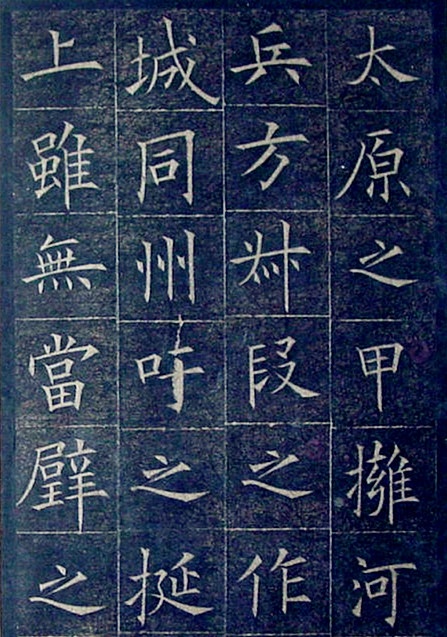 太原之甲擁河
兵方叔段之作
城同州吁之挺
上雖無當璧之